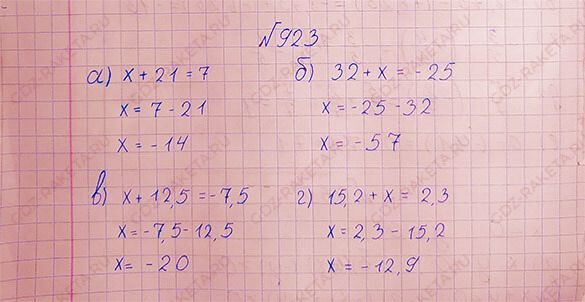 №923
а) x + 21 = 7
x = 7 - 21
x = - 14
б) 32 + x = - 25
x = - 25 - 32
x = - 57
в) x + 12,5 = - 7,5
x = - 7,5 - 12,5
x = - 20
г) 15,2 + x = 2,3
x = 2,3 - 15,2
x = - 12,9
GDZ-RAKETA.RU